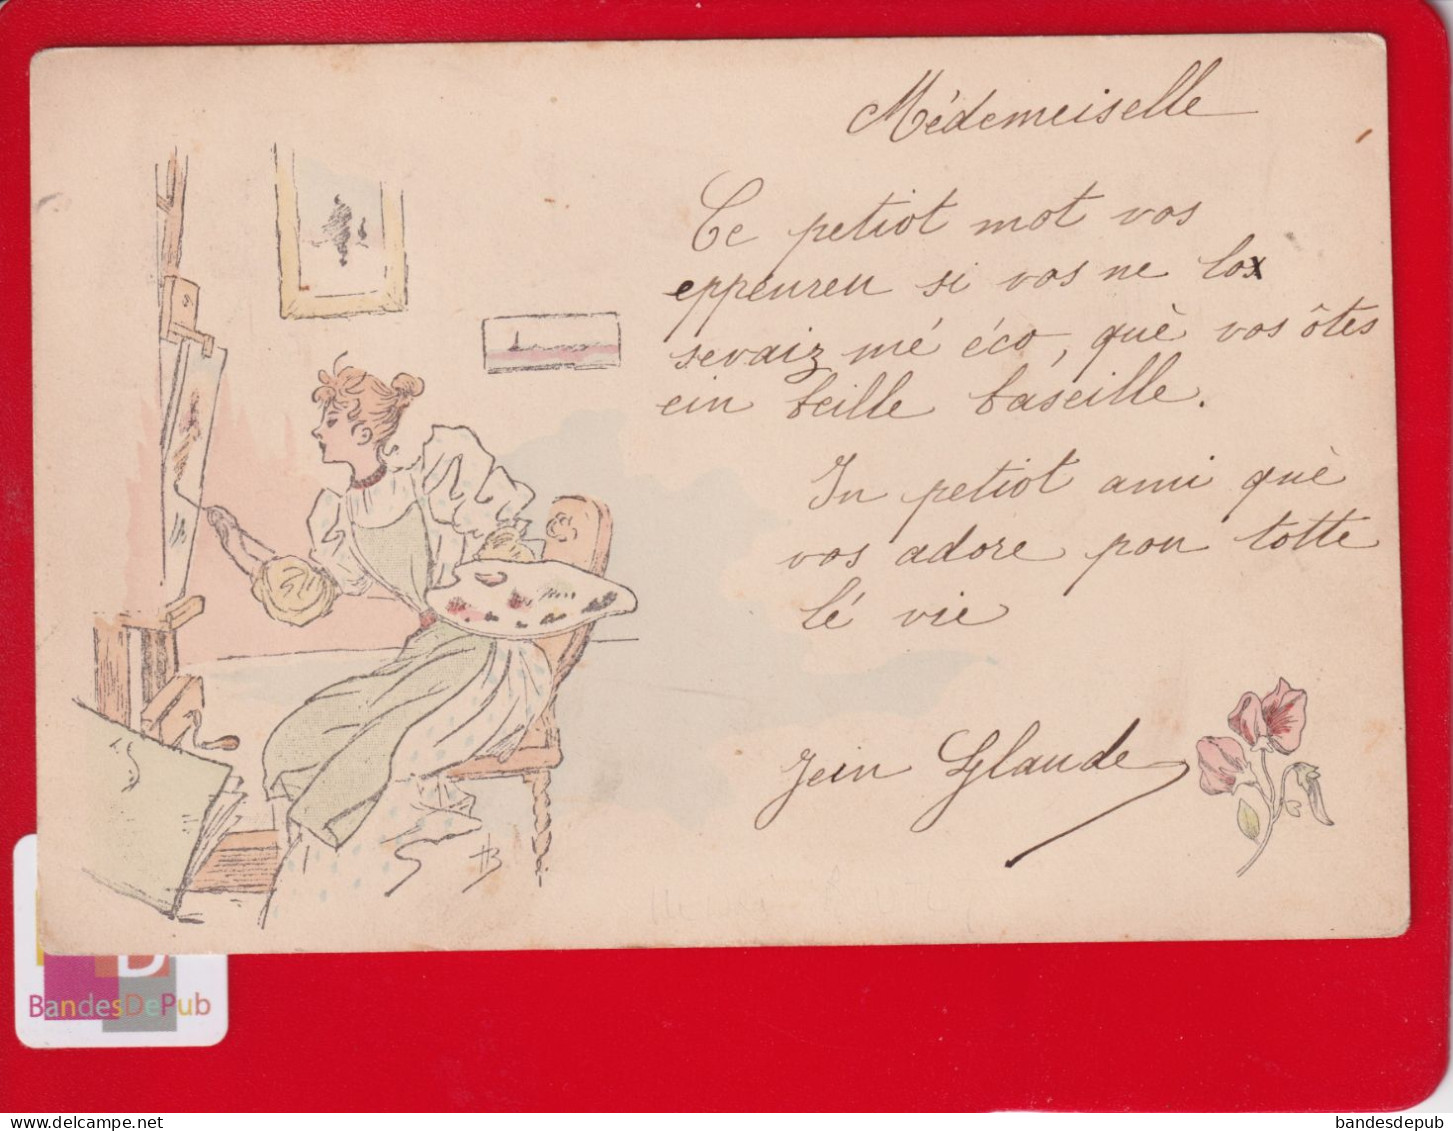 Médemeiselle
Ce petiot mot vos
eppenren si vos ne lo
sevaiz mé éco, què vos ôtes
ein beille báseille.
In petiot ami què
vos adore pou totte
lé vie
Jein Glaude
HB
BandesDePub
bandesdepub